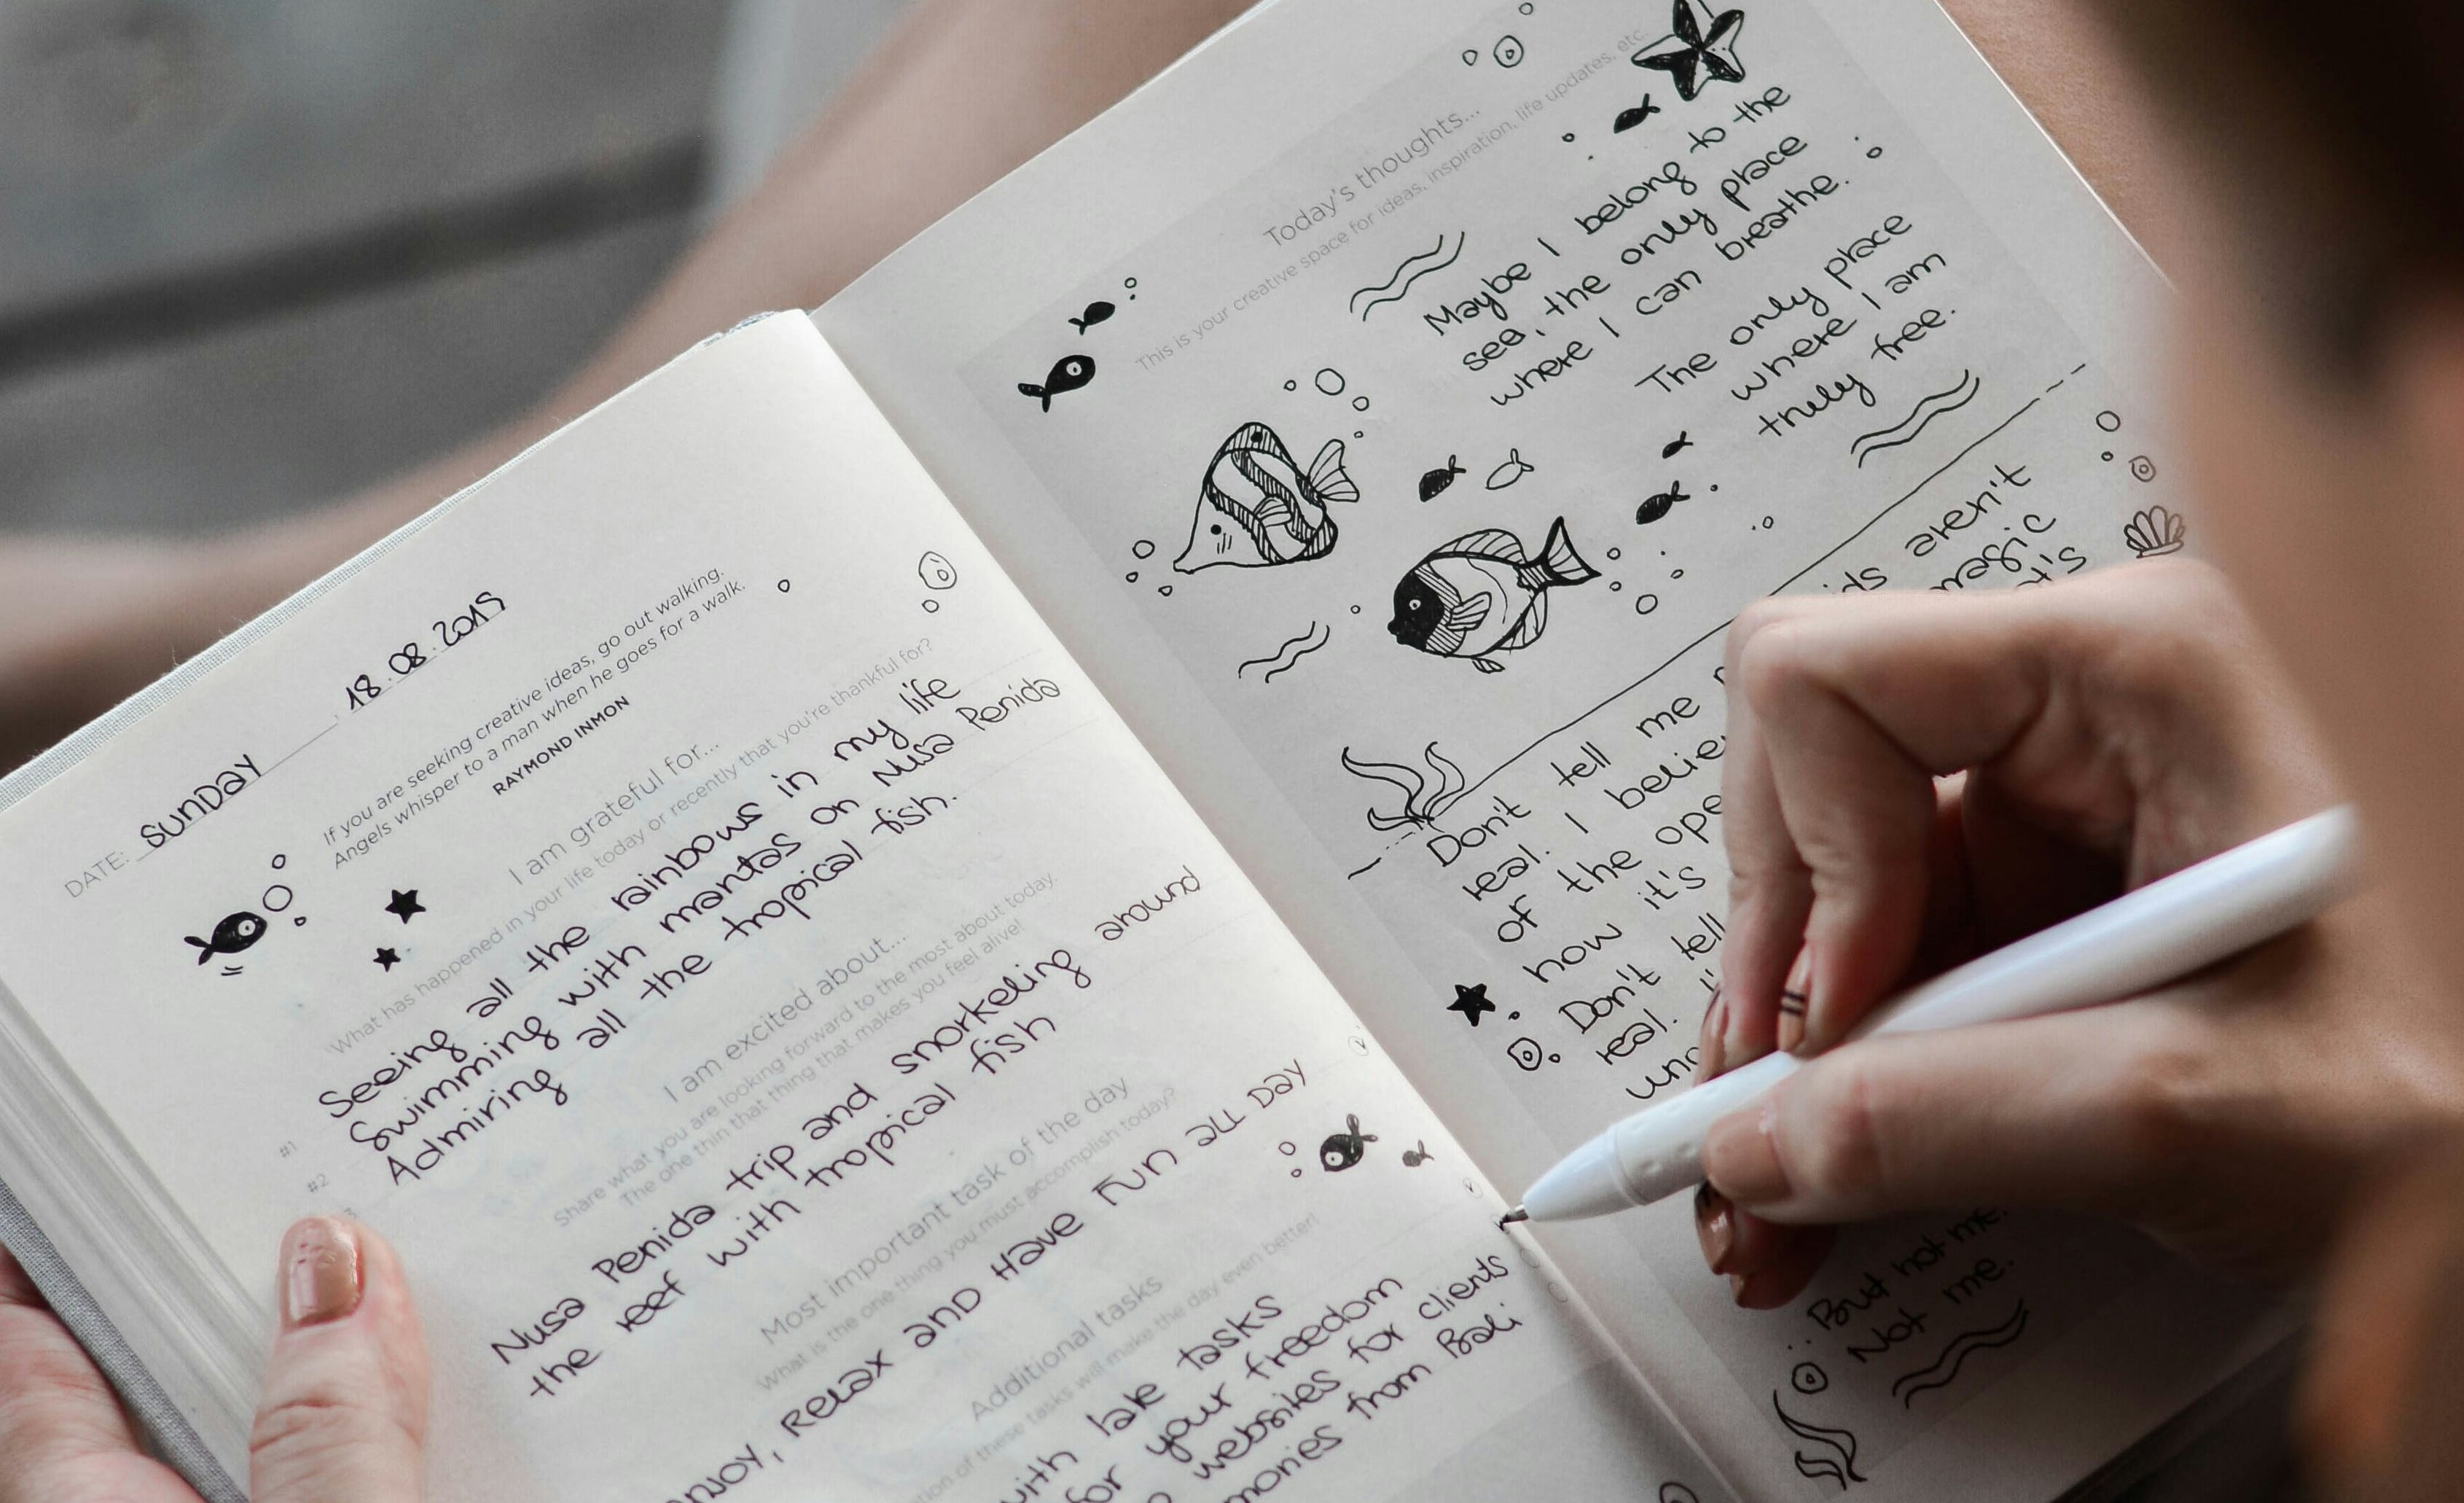 DATE: SUNDAY 18.08.2019
If you are seeking creative ideas, go out walking.
Angels whisper to a man when he goes for a walk.
RAYMOND INMON
I am grateful for...
What has happened in your life today or recently that you're thankful for?
#1 Seeing all the rainbows in my life
#2 Swimming with mantas on Nusa Penida
3 Admiring all the tropical fish.
I am excited about...
Share what you are looking forward to the most about today.
The one thin that thing that makes you feel alive!
Nusa Penida trip and snorkeling around
the reef with tropical fish
Most important task of the day
What is the one thing you must accomplish today?
RELAX AND HAVE FUN ALL DAY
Additional tasks
of these tasks will make the day even better!
with late tasks
for your freedom
websites for clients
from Bali
Today's thoughts...
This is your creative space for ideas, inspiration, life updates, etc.
Maybe I belong to the
sea, the only place
where I can breathe.
The only place
where I am
truly free.
aren't
Don't tell me magic
real. I
of the
how it's
Don't tell
real.
But not me.
Not me.